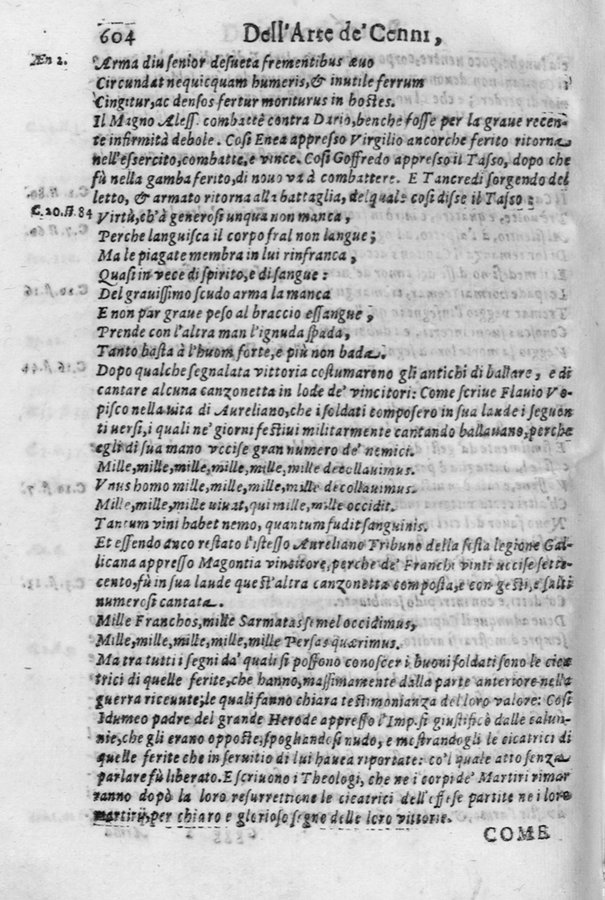 604 Dell'Arte de' Cenni,
Æn 2. Arma diu senior desueta frementibus æuo
Circundat nequicquam humeris, & inutile ferrum
Cingitur, ac densos fertur moriturus in hostes.
Il Magno Aless. combattè contra Dario, benche fosse per la graue recen-
te infirmità debole. Così Enea appresso Virgilio ancorche ferito ritorna
nell'essercito, combatte, e vince. Così Goffredo appresso il Tasso, dopo che
fù nella gamba ferito, di nouo và à combattere. E Tancredi sorgendo del
letto, & armato ritorna alla battaglia, del quale così disse il Tasso:
C. 20. st. 84 Virtù, ch'à generosi unqua non manca,
Perche languisca il corpo fral non langue;
Ma le piagate membra in lui rinfranca,
Quasi in vece di spirito, e di sangue:
Del grauissimo scudo arma la manca
E non par graue peso al braccio essangue,
Prende con l'altra man l'ignuda spada,
Tanto basta à l'huom forte, e più non bada.
Dopo qualche segnalata vittoria costumarono gli antichi di ballare, e di
cantare alcuna canzonetta in lode de' vincitori: Come scriue Flauio Vo-
pisco nella uita di Aureliano, che i soldati composero in sua laude i seguen
ti uersi, i quali ne' giorni festiui militarmente cantando ballauano, perche
egli di sua mano vccise gran numero de' nemici.
Mille, mille, mille, mille, mille, mille decollauimus.
Vnus homo mille, mille, mille, mille decollauimus.
Mille, mille, mille uiuat, qui mille, mille occidit.
Tantum vini habet nemo, quantum fudit sanguinis.
Et essendo anco restato l'istesso Aureliano Tribuno della sesta legione Gal-
licana appresso Magontia vincitore, perche de' Franchi vinti uccise sette-
cento, fù in sua laude quest'altra canzonetta composta, e con gesti, e salti
numerosi cantata.
Mille Franchos, mille Sarmatas semel occidimus,
Mille, mille, mille, mille, mille Persas quærimus.
Ma tra tutti i segni da' quali si possono conoscer i buoni soldati sono le cica
trici di quelle ferite, che hanno, massimamente dalla parte anteriore nella
guerra riceuute; le quali fanno chiara testimonianza del loro valore: Così
Idumeo padre del grande Herode appresso l'Imp. si giustificò dalle calun-
nie, che gli erano opposte, spogliandosi nudo, e mostrandogli le cicatrici di
quelle ferite che in seruitio di lui hauea riportate: co'l quale atto senza
parlare fù liberato. E scriuono i Theologi, che ne i corpi de' Martiri rimar
ranno dopò la loro resurrettione le cicatrici dell'offese partite ne i loro
martirij, per chiaro e glorioso segno delle loro vittorie.
COME